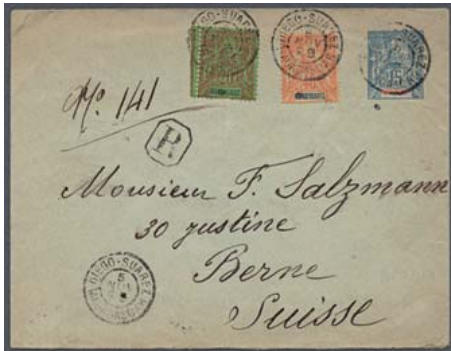 DIEGO-SUAREZ
DIEGO-SUAREZ
15
No. 141
R
Monsieur F. Salzmann
30 zustine
Berne
Suisse
DIEGO-SUAREZ
5